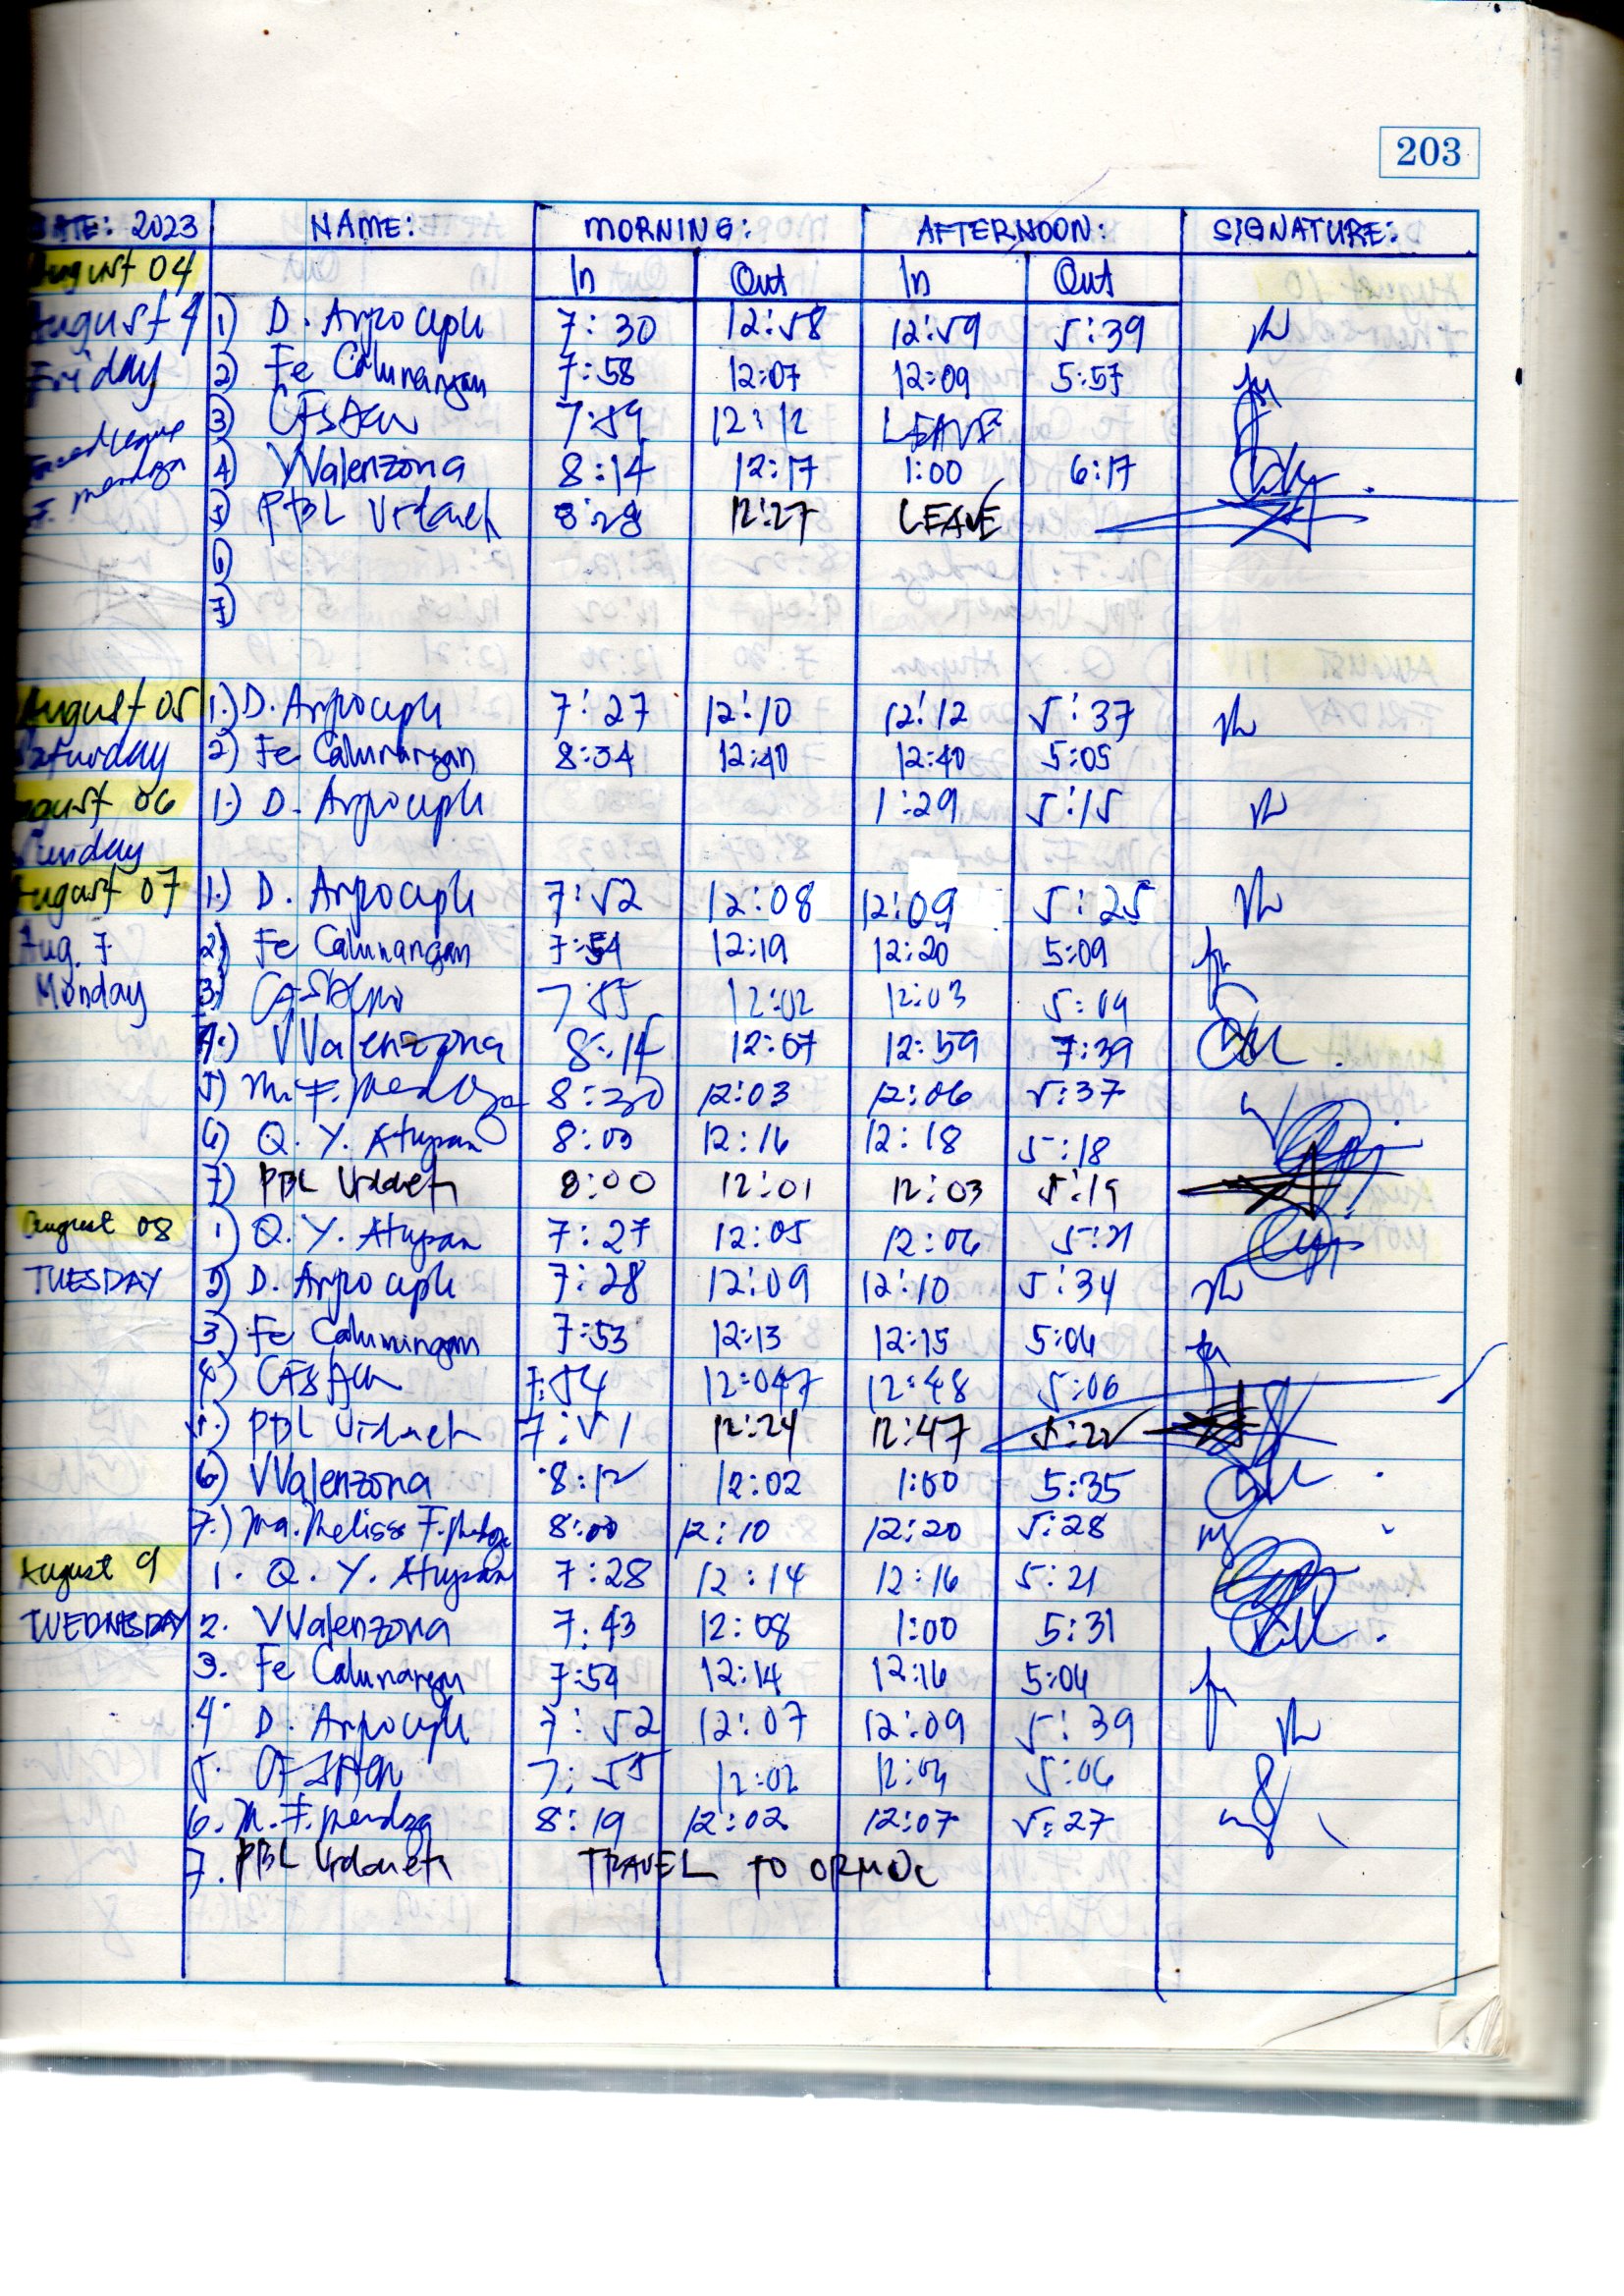 203
DATE: 2023 NAME: MORNING: AFTERNOON: SIGNATURE:
August 04 In Out In Out
August 4 1) D. Arpo 7:30 12:58 12:59 5:39
Friday 2) Fe Calunangan 7:58 12:07 12:09 5:57
3) 7:59 12:12 LEAVE
F. Mendoza 4) VValenzona 8:14 12:17 1:00 6:17
5) PBL Urdaneta 8:28 12:27 LEAVE
6)
7)
August 05 1.) D. Arpo 7:27 12:10 12:12 5:37
Saturday 2) Fe Calunangan 8:34 12:40 12:40 5:05
August 06 1.) D. Arpo 1:29 5:15
Sunday
August 07 1.) D. Arpo 7:52 12:08 12:09 5:25
Aug. 7 2) Fe Calunangan 7:54 12:19 12:20 5:09
Monday 3) 7:55 12:02 12:03 5:04
4.) VValenzona 8:14 12:07 12:59 7:39
5) M. F. Mendoza 8:30 12:03 12:06 5:37
6) Q. Y. Atupan 8:00 12:16 12:18 5:18
7) PBL Urdaneta 8:00 12:01 12:03 5:19
August 08 1) Q. Y. Atupan 7:27 12:05 12:06 5:21
TUESDAY 2) D. Arpo 7:28 12:09 12:10 5:34
3) Fe Calunangan 7:53 12:13 12:15 5:06
4) 7:54 12:047 12:48 5:06
5.) PBL Urdaneta 7:51 12:24 12:47 5:22
6) VValenzona 8:12 12:02 1:00 5:35
7.) Ma. Melissa F. Mendoza 8:00 12:10 12:20 5:28
August 9 1. Q. Y. Atupan 7:28 12:14 12:16 5:21
TUEDNESDAY 2. VValenzona 7:43 12:08 1:00 5:31
3. Fe Calunangan 7:54 12:14 12:16 5:06
4. D. Arpo 7:52 12:07 12:09 5:39
5. 7:55 12:02 12:04 5:06
6. M. F. Mendoza 8:19 12:02 12:07 5:27
7. PBL Urdaneta TRAVEL TO ORMOC